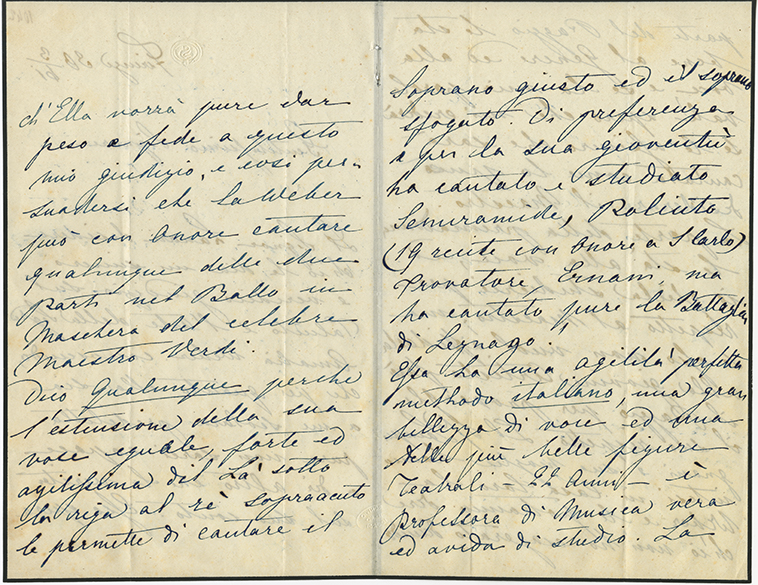 ch'Ella vorrà pure dar
peso e fede a questo
mio giudizio, e così per-
suadersi che La Weber
può con Onore cantare
qualunque delle due
parti nel Ballo in
Maschera del celebre
Maestro Verdi.
Dico Qualunque perche
l'estensione della sua
vose eguale, forte ed
agilissima dil La sotto
la riga al rè sopraacuto
le permette di cantare il
Soprano giusto ed il soprano
sfogato. Di preferenza
e per la sua gioventù
ha cantato e studiato
Semiramide, Poliuto
(19 recite con Onore a S Carlo)
Trovatore, Ernani, ma
ha cantato pure la Battaglia
di Legnago.
Essa ha una agilità perfetta
methodo italiano, una gran
bellezza di vose ed una
delle più belle figure
Teatrali - 22 Anni - è
Professora di Musica vera
ed avida di studio. La